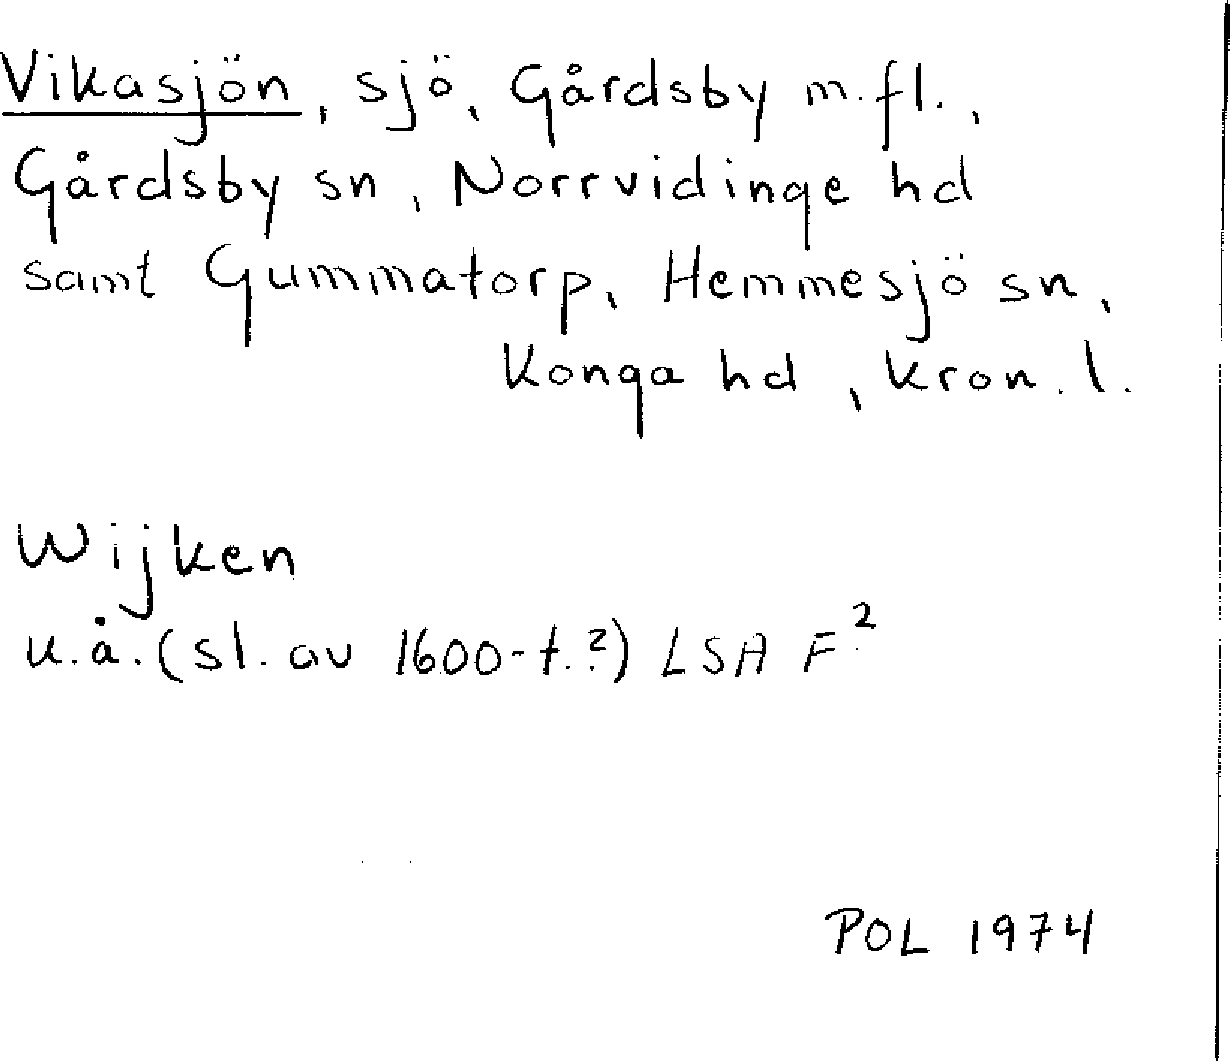 Vikasjön, sjö, Gårdsby m.fl.,
Gårdsby sn, Norrvidinge hd
samt Gummatorp, Hemmesjö sn,
Konga hd, Kron. l.
Wijken
u.å. (sl. av 1600-t.?) LSA F²
POL 1974